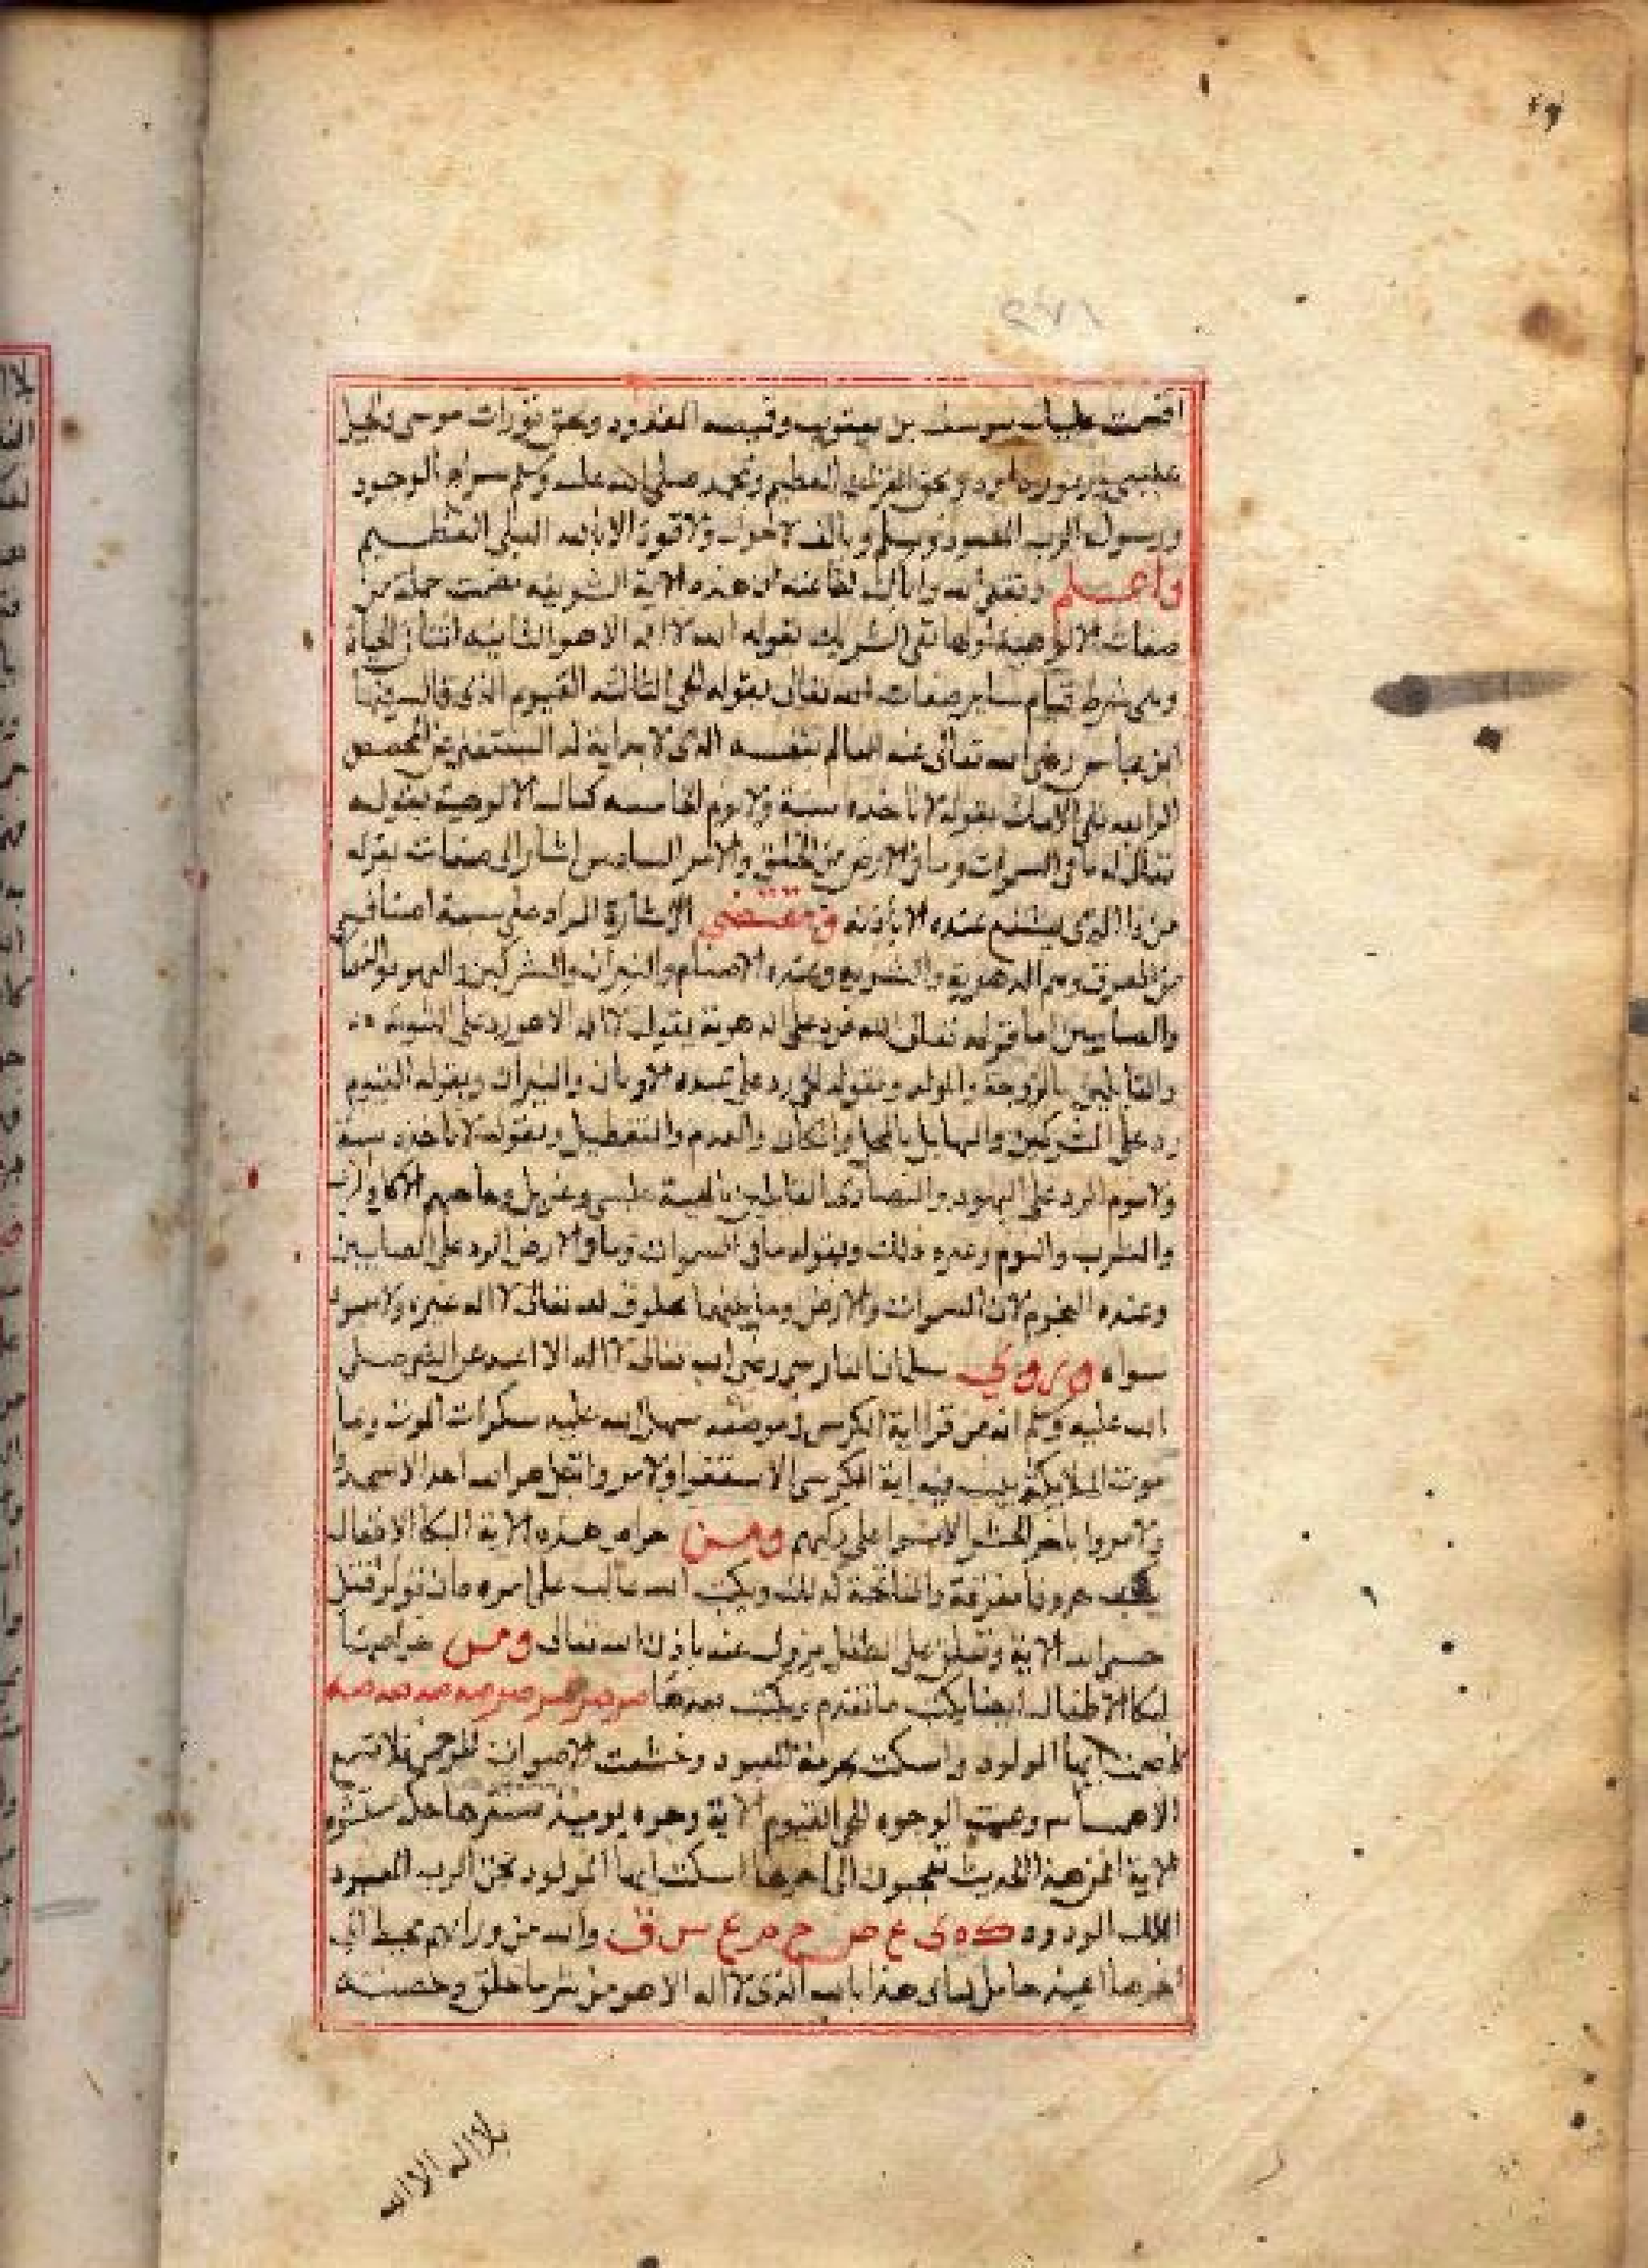 اقسمت عليك بيوسف بن يعقوب وقميصه المقدود وبحق تورات موسى وانجيل
عيسى وزبور داود وبحق الفرقان العظيم ومحمد صلى الله عليه وسلم سراج الوجود
ورسول الرب المعبود وبألف لا حول ولا قوة الا بالله العلى العظيم
واعلم وفقنى الله واياك لطاعته ان هذه الاية الشريفه تضمنت جملة من
صفات الالوهية اولها نفى الشريك بقوله الله لا اله الا هو الثانيه الحياة
وهى شرط قيام ساير صفات الله تعالى بقوله الحى الثالثه القيوم الذى قال فيها
ابن عباس رضى الله تعالى عنه القايم بنفسه الذى لا بداية له المستغنى عن المخصص
الرابعه نفى بقوله لا تاخذه سنة ولا نوم الخامسه كمال الالوهية بقوله
تعالى له ما فى السموات وما فى الارض من الخلق والامر السادس اشار الى صفات بقوله
من ذا الذى يشفع عنده الا باذنه ومقتضى الاشارة الرد على سبعة اصناف
من الفرق وهم الدهرية والثنوية وعبدة الاصنام والنيران والمشركين واليهود والنصارى
والصابيين اما قوله تعالى الله فرد على الدهرية بقوله لا اله الا هو رد على الثنوية
والقايلين بالزوجة والولد وبقوله الحى رد على عبدة الاوثان والنيران وبقوله القيوم
رد على المشركين والعدم والتعطيل وبقوله لا تاخذه سنة
ولا نوم الرد على اليهود والنصارى القايلين بالهية عيسى وعزير
والشرب والنوم وغيره ذلك وبقوله ما فى السموات وما فى الارض الرد على الصابيين
وعبدة النجوم لان السموات والارض وما بينهما مخلوق لله تعالى لا اله غيره ولا معبود
سواه وروي سلمان الفارسى رضى الله تعالى عن النبى صلى
الله عليه وسلم انه من قرا اية الكرسى سهل الله عليه سكرات الموت وما
مرت الملايكة ببيت فيه اية الكرسى الا ولا مروا بقل هو الله احد الا سجدوا
ولا مروا باخر الحشر الا جثوا على ركبهم ومن خواص هذه الاية لبكا الاطفال
تكتب حروفا مفرقة والفاتحة كذلك ويكتب الله غالب على امره فان تولوا فقل
حسبى الله الاية وتعلق على الطفل يزول عنه باذن الله تعالى ومن خواصها
لبكا الاطفال ايضا يكتب ما تقدم ويكتب بعدها
ايها المولود واسكت بحرمة المعبود وخشعت الاصوات للرحمن فلا تسمع
الا همسا وعنت الوجوه للحى القيوم الاية وجوه يوميذ
الاية افمن هذا الحديث تعجبون الى اخرها اسكت ايها المولود بحق الرب المعبود
الملك الودود ك ه ى ع ص ح م ع س ق والله من ورائهم محيط الى
اخرها اعيذ حامل كتابى هذا بالله الذى لا اله الا هو من شر ما خلق وحصنته
بلا اله الا الله